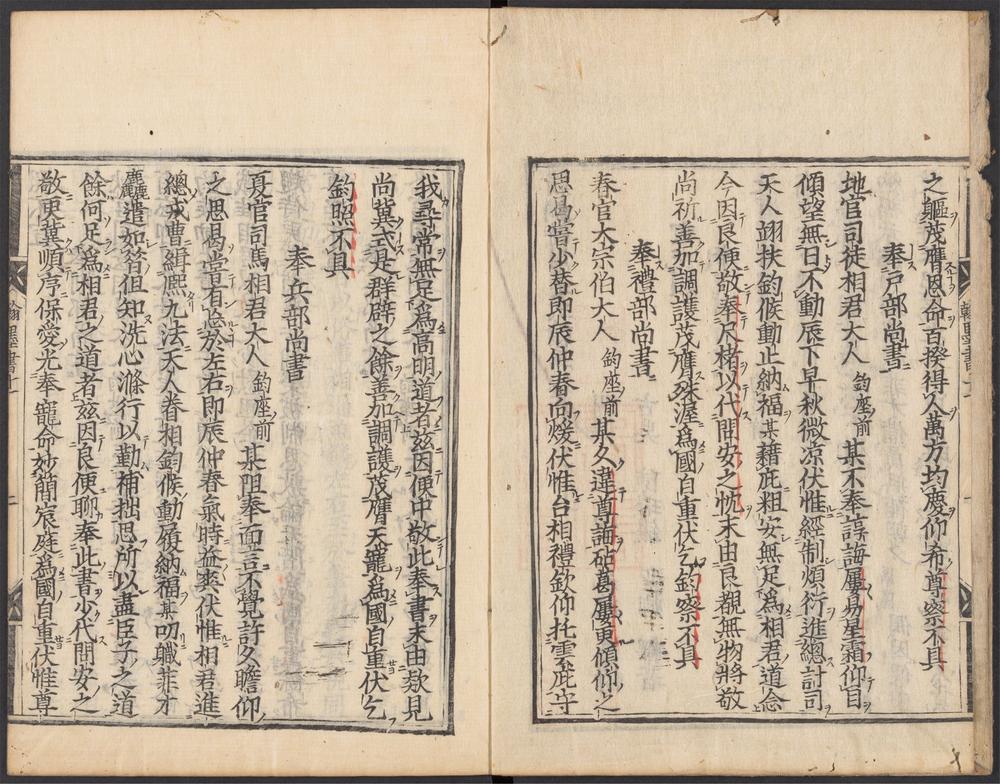 之軀茂膺恩命百揆得人萬方均慶仰希尊察不具
奉戸部尚書
地官司徒相君大人 鈞座前 某不奉誨屢易星霜仰目
傾望無日不動辰下早秋微凉伏惟經制煩衍進總計司
天人翊扶鈞候動止納福某藉庇粗安無足爲相君道念
今因良便敬奉尺楮以代問安之忱末由良覿無物將敬
尚祈善加調護茂膺殊渥爲國自重伏乞鈞察不具
奉禮部尚書
春官大宗伯大人 鈞座前 某久違尊誨砧葛屢更傾仰之
思曷嘗少替即辰仲春向煖伏惟台相禮欽仰托雲庇守
我尋常無足爲高明道者玆因便中敬此奉書末由欵見
尚冀式是群辟之餘善加調護茂膺天寵爲國自重伏乞
鈞照不具
奉兵部尚書
夏官司馬相君大人 鈞座前 某阻奉面言不覺許久瞻仰
之思曷嘗有忘於左右即辰仲春氣時益爽伏惟相君進
總戎曹緝熈九法天人眷相鈞候動履納福某叨職菲才
麤遣如昝但知洗心滌行以勤補拙思所以盡臣子之道
餘何足爲相君之道者玆因良便聊奉此書少代問安之
敬更冀順序保愛光奉寵命妙簡宸庭爲國自重伏惟尊
翰墨書